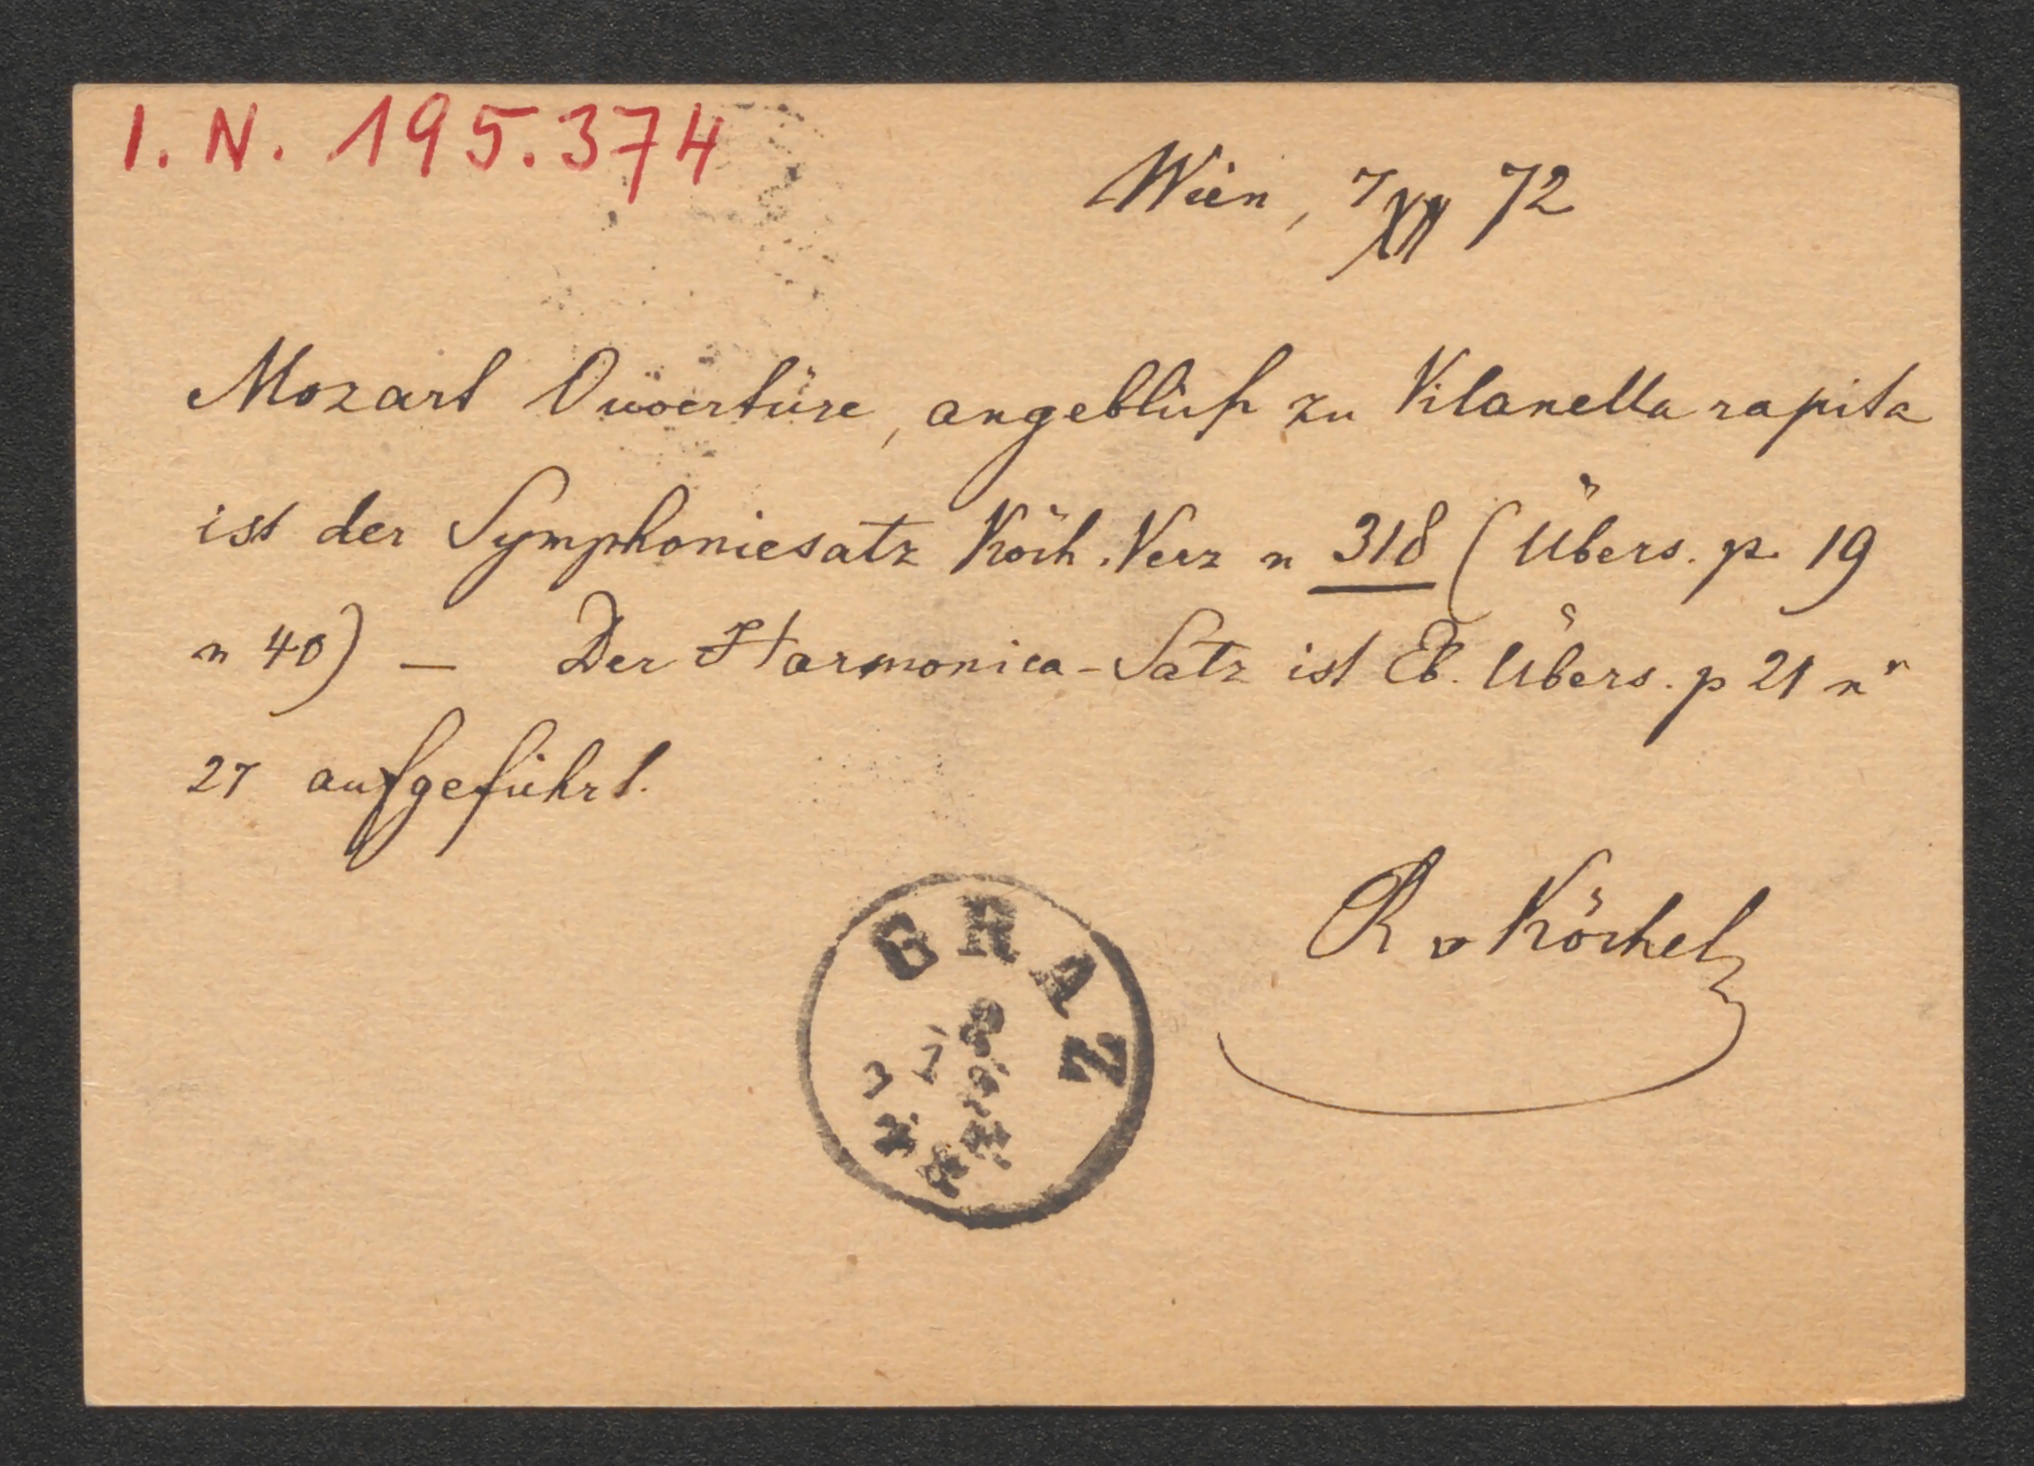 I. N. 195.374
Wien, 7/XII 72
Mozart Ouvertüre, angeblich zu Vilanella rapita
ist der Symphoniesatz Köch. Verz n 318 (Übers. p. 19
n 40) — Der Harmonica-Satz ist Eb. Übers. p 21 n°
27 aufgeführt.
R v Köchel
GRAZ